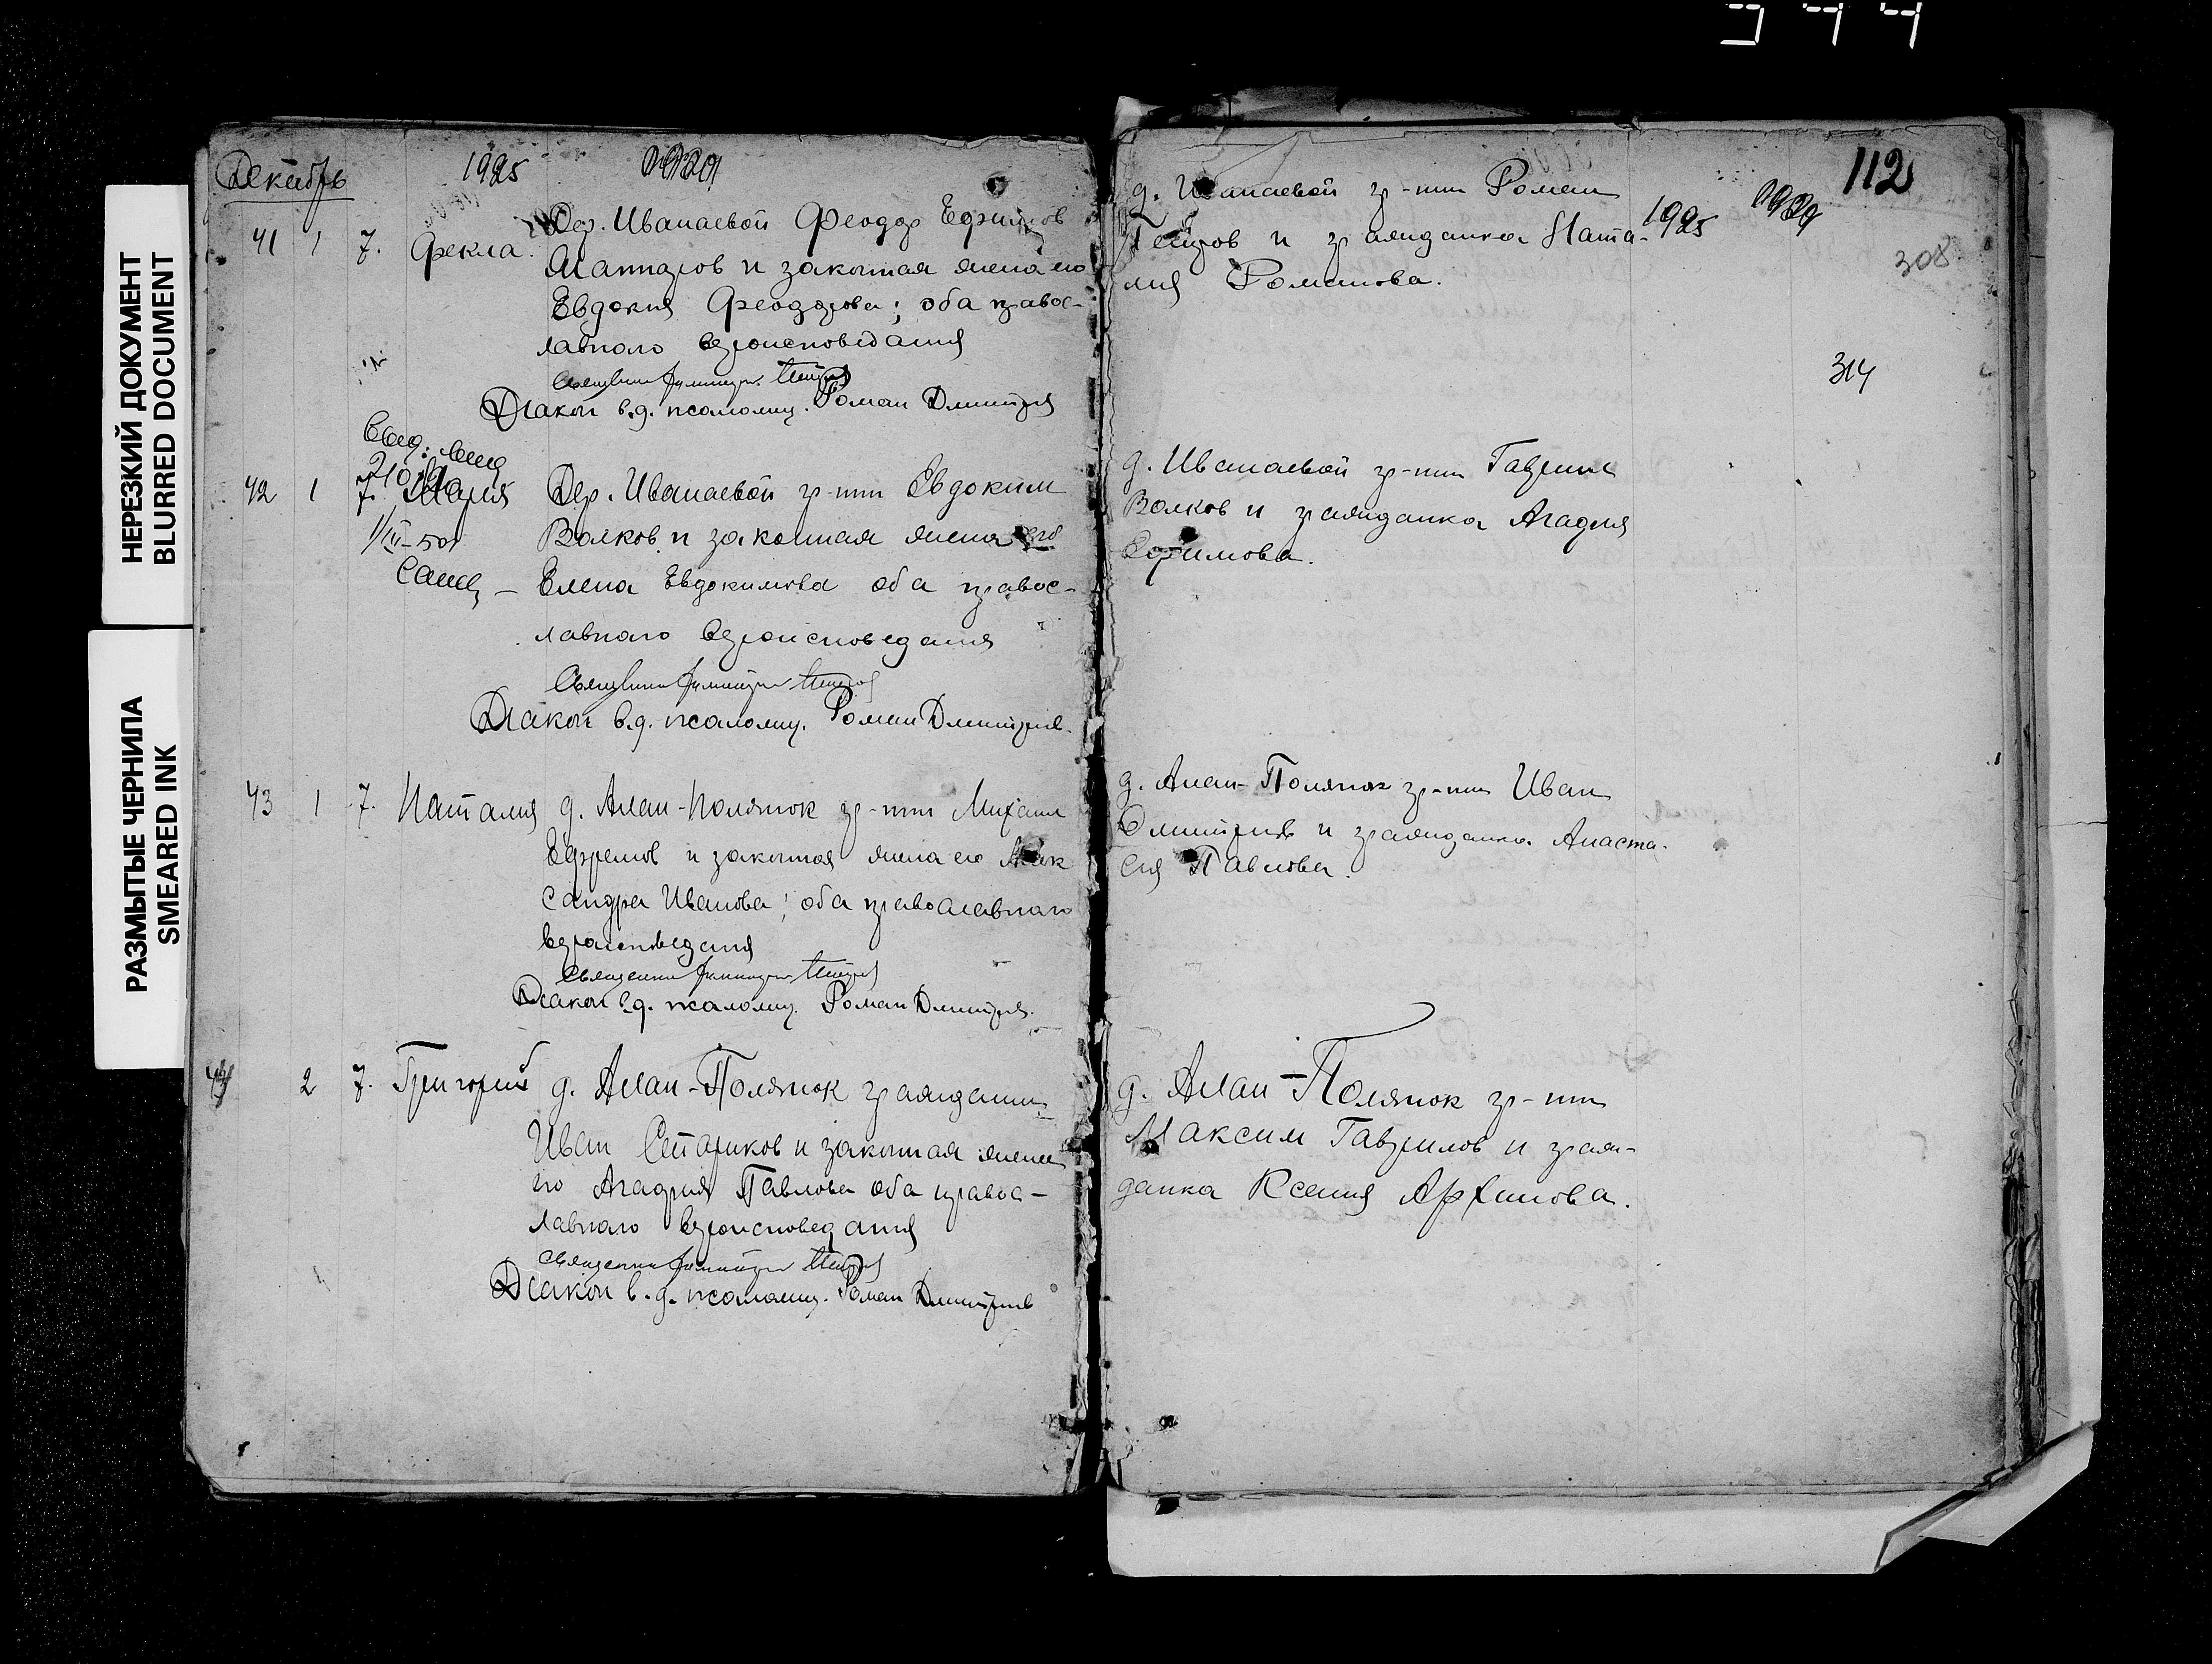 344
НЕРЕЗКИЙ ДОКУМЕНТ
BLURRED DOCUMENT
РАЗМЫТЫЕ ЧЕРНИЛА
SMEARED INK
Декабрь 1925
41 1 7. Фекла. Дер. Иванаевой Феодор Ефимов
и законная жена его
Евдокия Феодорова; оба правос-
лавного вероисповедания
Диакон в.д. псаломщ. Роман Дмитрiев
Выд.
42 1 7. Мария Дер. Иванаевой гр-нин Евдоким
1/III-50 Волков и законная жена его
Елена Евдокимова оба правос-
лавного вероисповедания
Диакон в.д. псаломщ. Роман Дмитрiев.
43 1 7. Наталия д. Алан-Полянок гр-нин Михаил
Ефремов и законная жена его Алек
сандра Иванова; оба православнаго
вероисповедания
Диакон в.д. псаломщ. Роман Дмитрiев.
44 2 7. Григорий д. Алан-Полянок гражданин
Иван Стариков и законная жена
его Агафия Павлова оба правос-
лавного вероисповедания
Диакон в.д. псаломщ. Роман Дмитрiев
112
д. Иванаевой гр-нин Роман
Петров и гражданка Ната- 1925
лия Романова.
308
314
д. Иванаевой гр-нин Гавриил
Волков и гражданка Агафия
Ефимова.
д. Алан-Полянок гр-нин Иван
Дмитриев и гражданка Анаста-
сия Павлова.
д. Алан-Полянок гр-нин
Максим Гаврилов и граж-
данка Ксения Архипова.